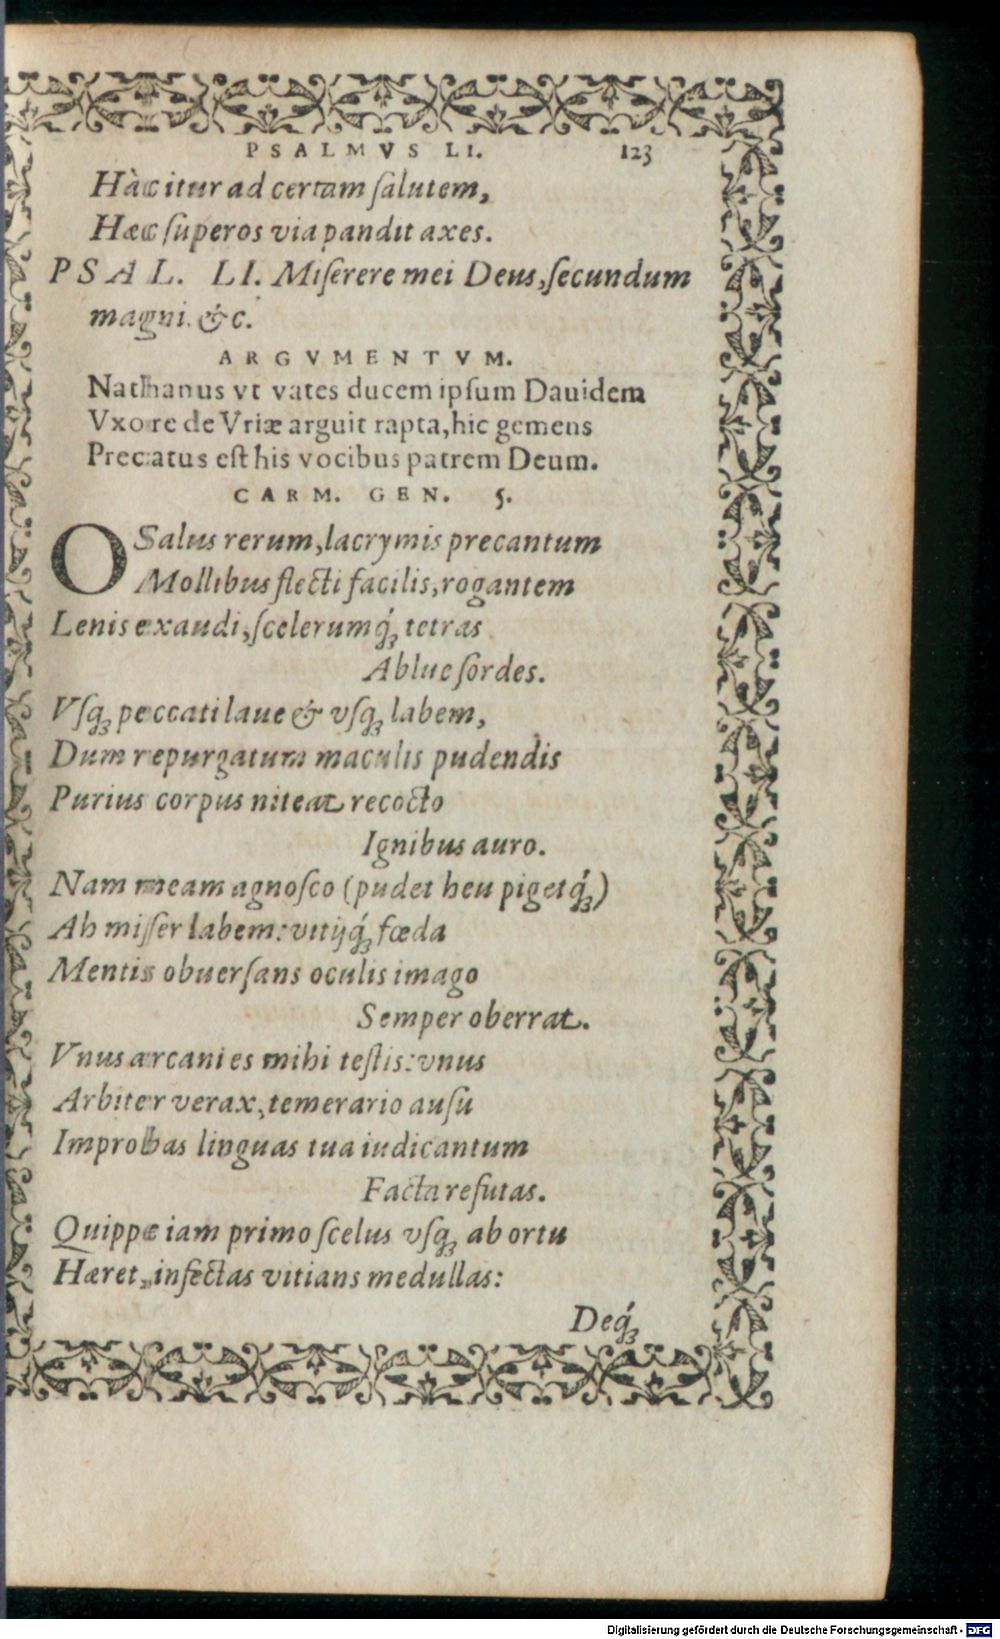 PSALMVS LI. 123
Hàc itur ad certam ſalutem,
Hæc ſuperos via pandit axes.
PSAL. LI. Miſerere mei Deus, ſecundum
magni. &c.
ARGVMENTVM.
Nathanus vt vates ducem ipſum Dauidem
Vxore de Vriæ arguit rapta, hic gemens
Precatus eſt his vocibus patrem Deum.
CARM. GEN. 5.
O Salus rerum, lacrymis precantum
Mollibus flecti facilis, rogantem
Lenis exaudi, ſcelerumq́; tetras
Ablue ſordes.
Vſq; peccati laue & vſq; labem,
Dum repurgatum maculis pudendis
Purius corpus niteat recocto
Ignibus auro.
Nam meam agnoſco (pudet heu pigetq́;)
Ah miſer labem: vitijq́; fœda
Mentis obuerſans oculis imago
Semper oberrat.
Vnus arcani es mihi teſtis: vnus
Arbiter verax, temerario auſu
Improbas linguas tua iudicantum
Facta refutas.
Quippe iam primo ſcelus vſq; ab ortu
Hæret, infectas vitians medullas:
Deq́;
Digitalisierung gefördert durch die Deutsche Forschungsgemeinschaft - DFG